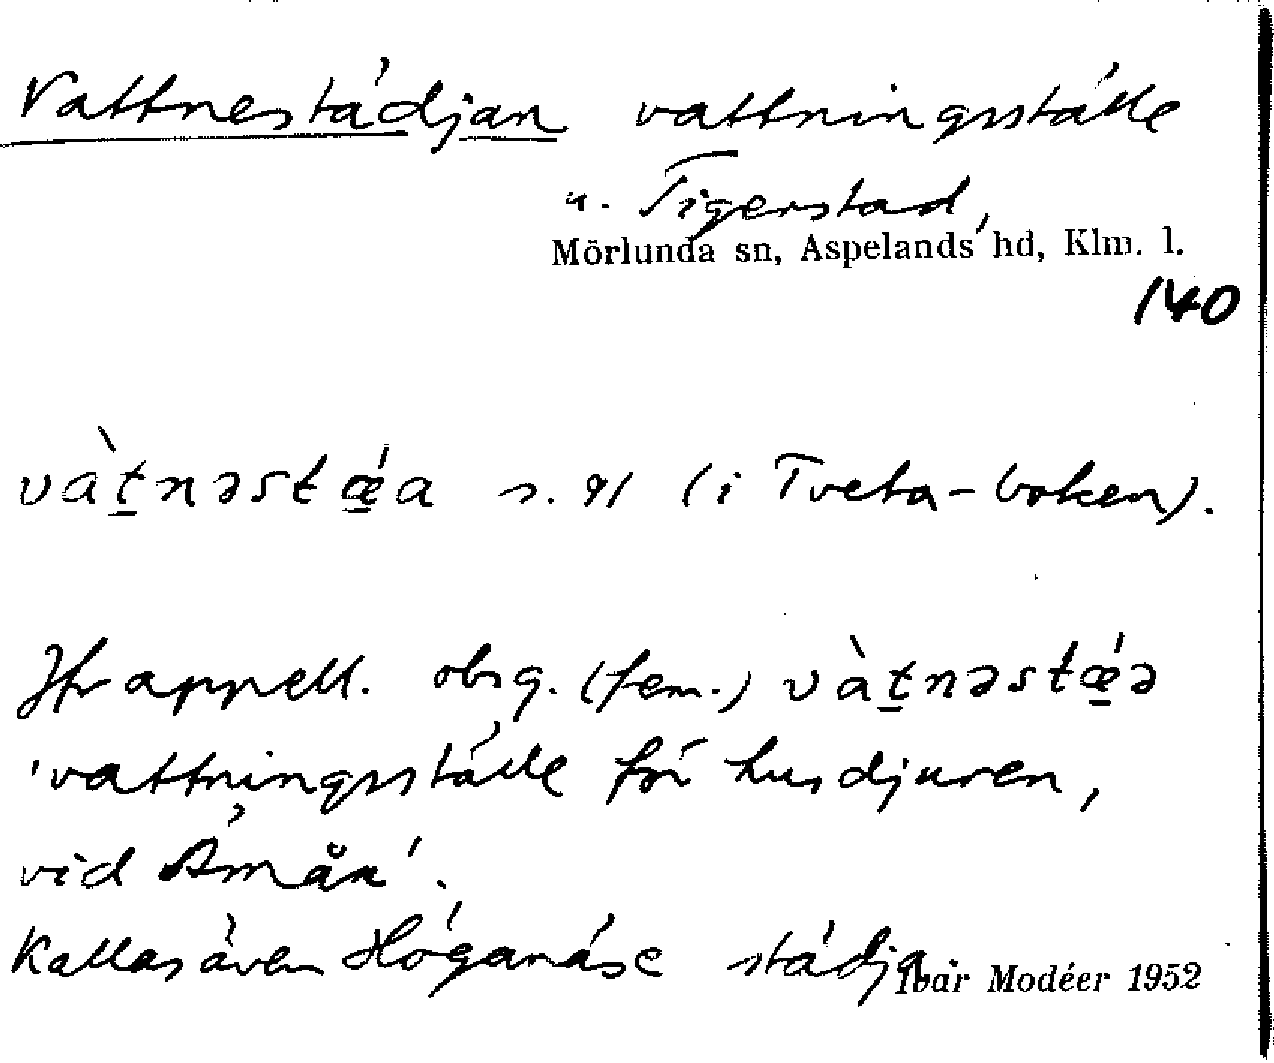 Vattnestädjan vattningsställe
u. Tigerstad,
Mörlunda sn, Aspelands hd, Klm. l.
140
vàt̲nəstǽ̲a s. 91 (i Tveta-boken).
Jfr appell. obsg. (fem.) vàt̲nəstǽ̲ə
'vattningsställe för husdjuren,
vid Åmån'.
Kallas även Höganäse städja.
Ivar Modéer 1952